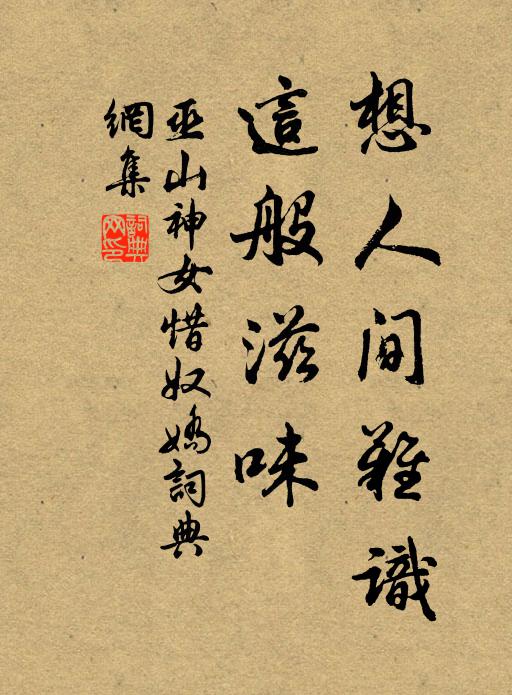 想人间難識
這般滋味
巫山神女惜奴嬌詞典
網集
詞典
网印